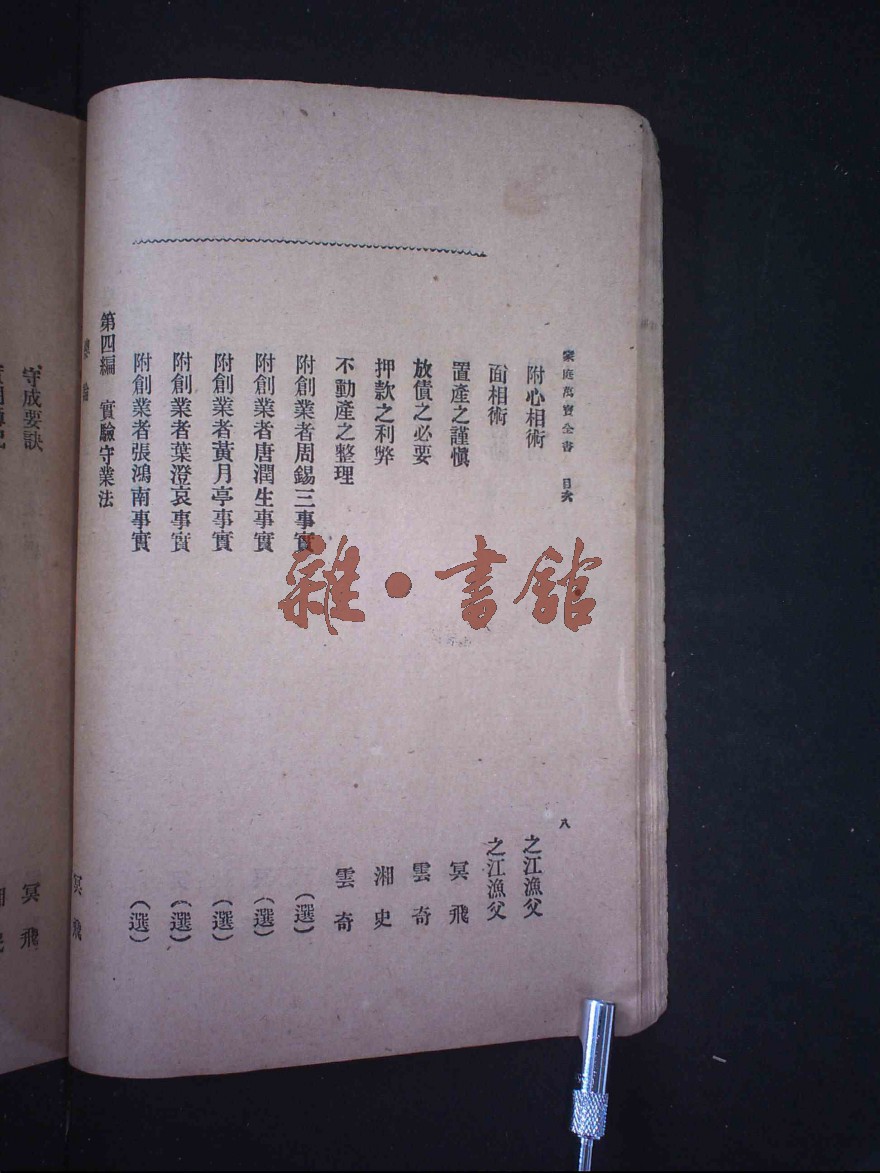 家庭萬寶全書 目次 八
附心相術 之江漁父
面相術 之江漁父
置產之謹慎 冥飛
放債之必要 雲奇
押款之利弊 湘史
不動產之整理 雲奇
附創業者周錫三事實 (選)
附創業者唐潤生事實 (選)
附創業者黃月亭事實 (選)
附創業者葉澄衷事實 (選)
附創業者張鴻南事實 (選)
第四編 實驗守業法
論 冥飛
守成要訣 冥飛
雜·書館